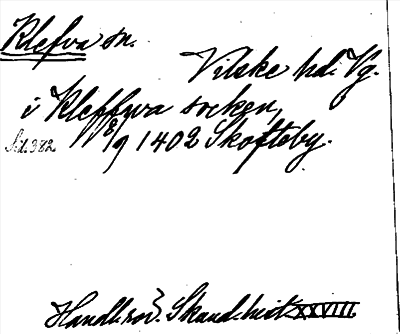 Klefva sn.
Vilske hd. Vg.
i Kleffwa socken,
Sid. 382. 18/9 1402 Skofteby.
Handl. rör. Skand. hist. XXVIII.